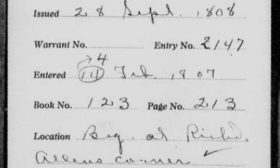 Issued 28 Sept. 1808
Warrant No. Entry No. 2147
4
Entered 14 Feb. 1807
Book No. 123 Page No. 213
Location Beg. at Richd.
Allens corner